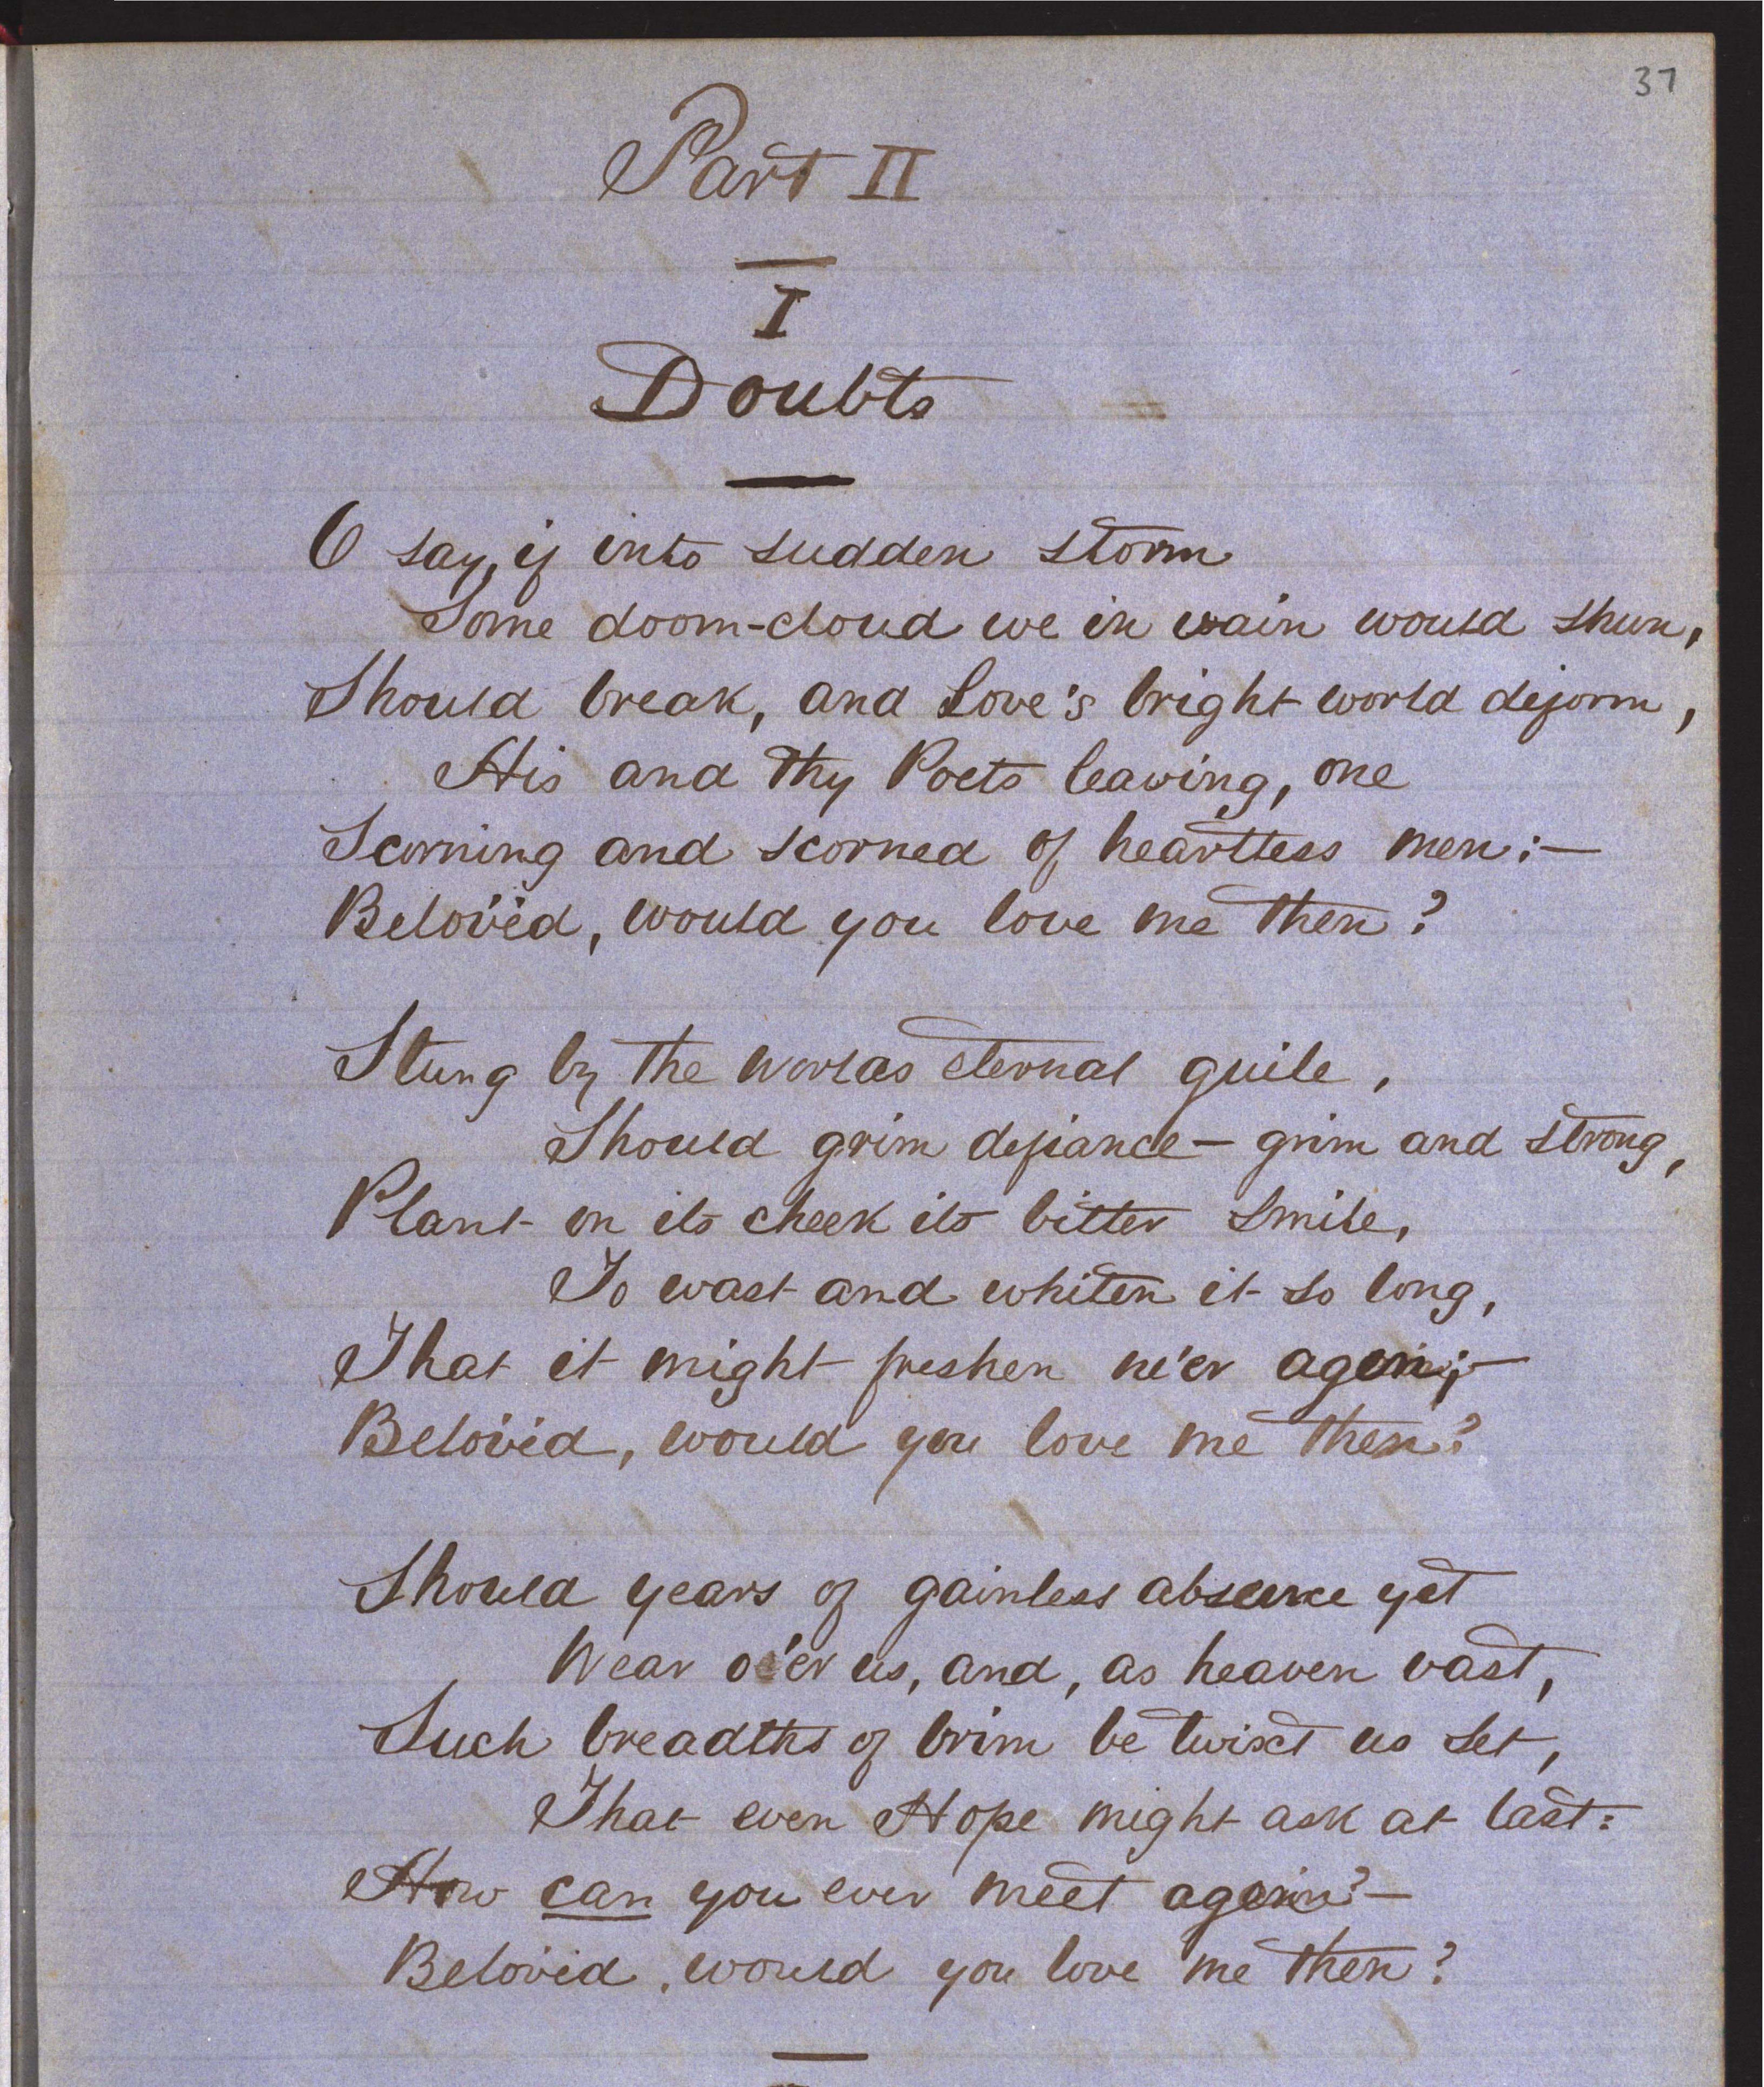 37
Part II
I
Doubts
O say, if into sudden storm
Some doom-cloud we in vain would shun,
Should break, and Love's bright world deform,
His and thy Poets leaving, one
Scorning and scorned of heartless men:—
Belovëd, would you love me then?
Stung by the worlds eternal guile,
Should grim defiance — grim and strong,
Plant on its cheek its bitter smile,
To wast and whiten it so long,
That it might freshen ne'er again;—
Belovëd, would you love me then?
Should years of gainless absence yet
Wear o'er us, and, as heaven vast,
Such breadths of brim betwixt us set,
That even Hope might ask at last:
How can you ever meet again?—
Belovëd, would you love me then?